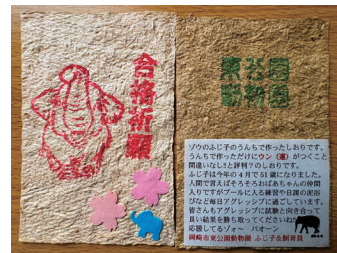 合格祈願
東公園
動物園
ゾウのふじ子のうんちで作ったしおりです。
うんちで作っただけにウン（運）がつくこと
間違いなし!と評判？のしおりです。
ふじ子は今年の4月で51歳になりました。
人間で言えばそろそろおばあちゃんの仲間
入りですがプールに入る練習や日課の泥浴
びなど毎日アグレッシブに過ごしています。
皆さんもアグレッシブに試験と向き合って
良い結果を勝ち取ってくださいね
応援してるゾォ～　パオーン
岡崎市東公園動物園 ふじ子&飼育員